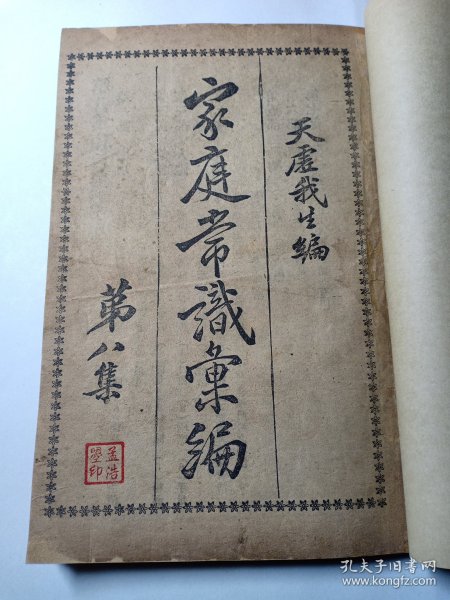 天虛我生編
家庭常識彙編
第八集
孟浩
墨印
孔夫子旧书网
www.kongfz.com